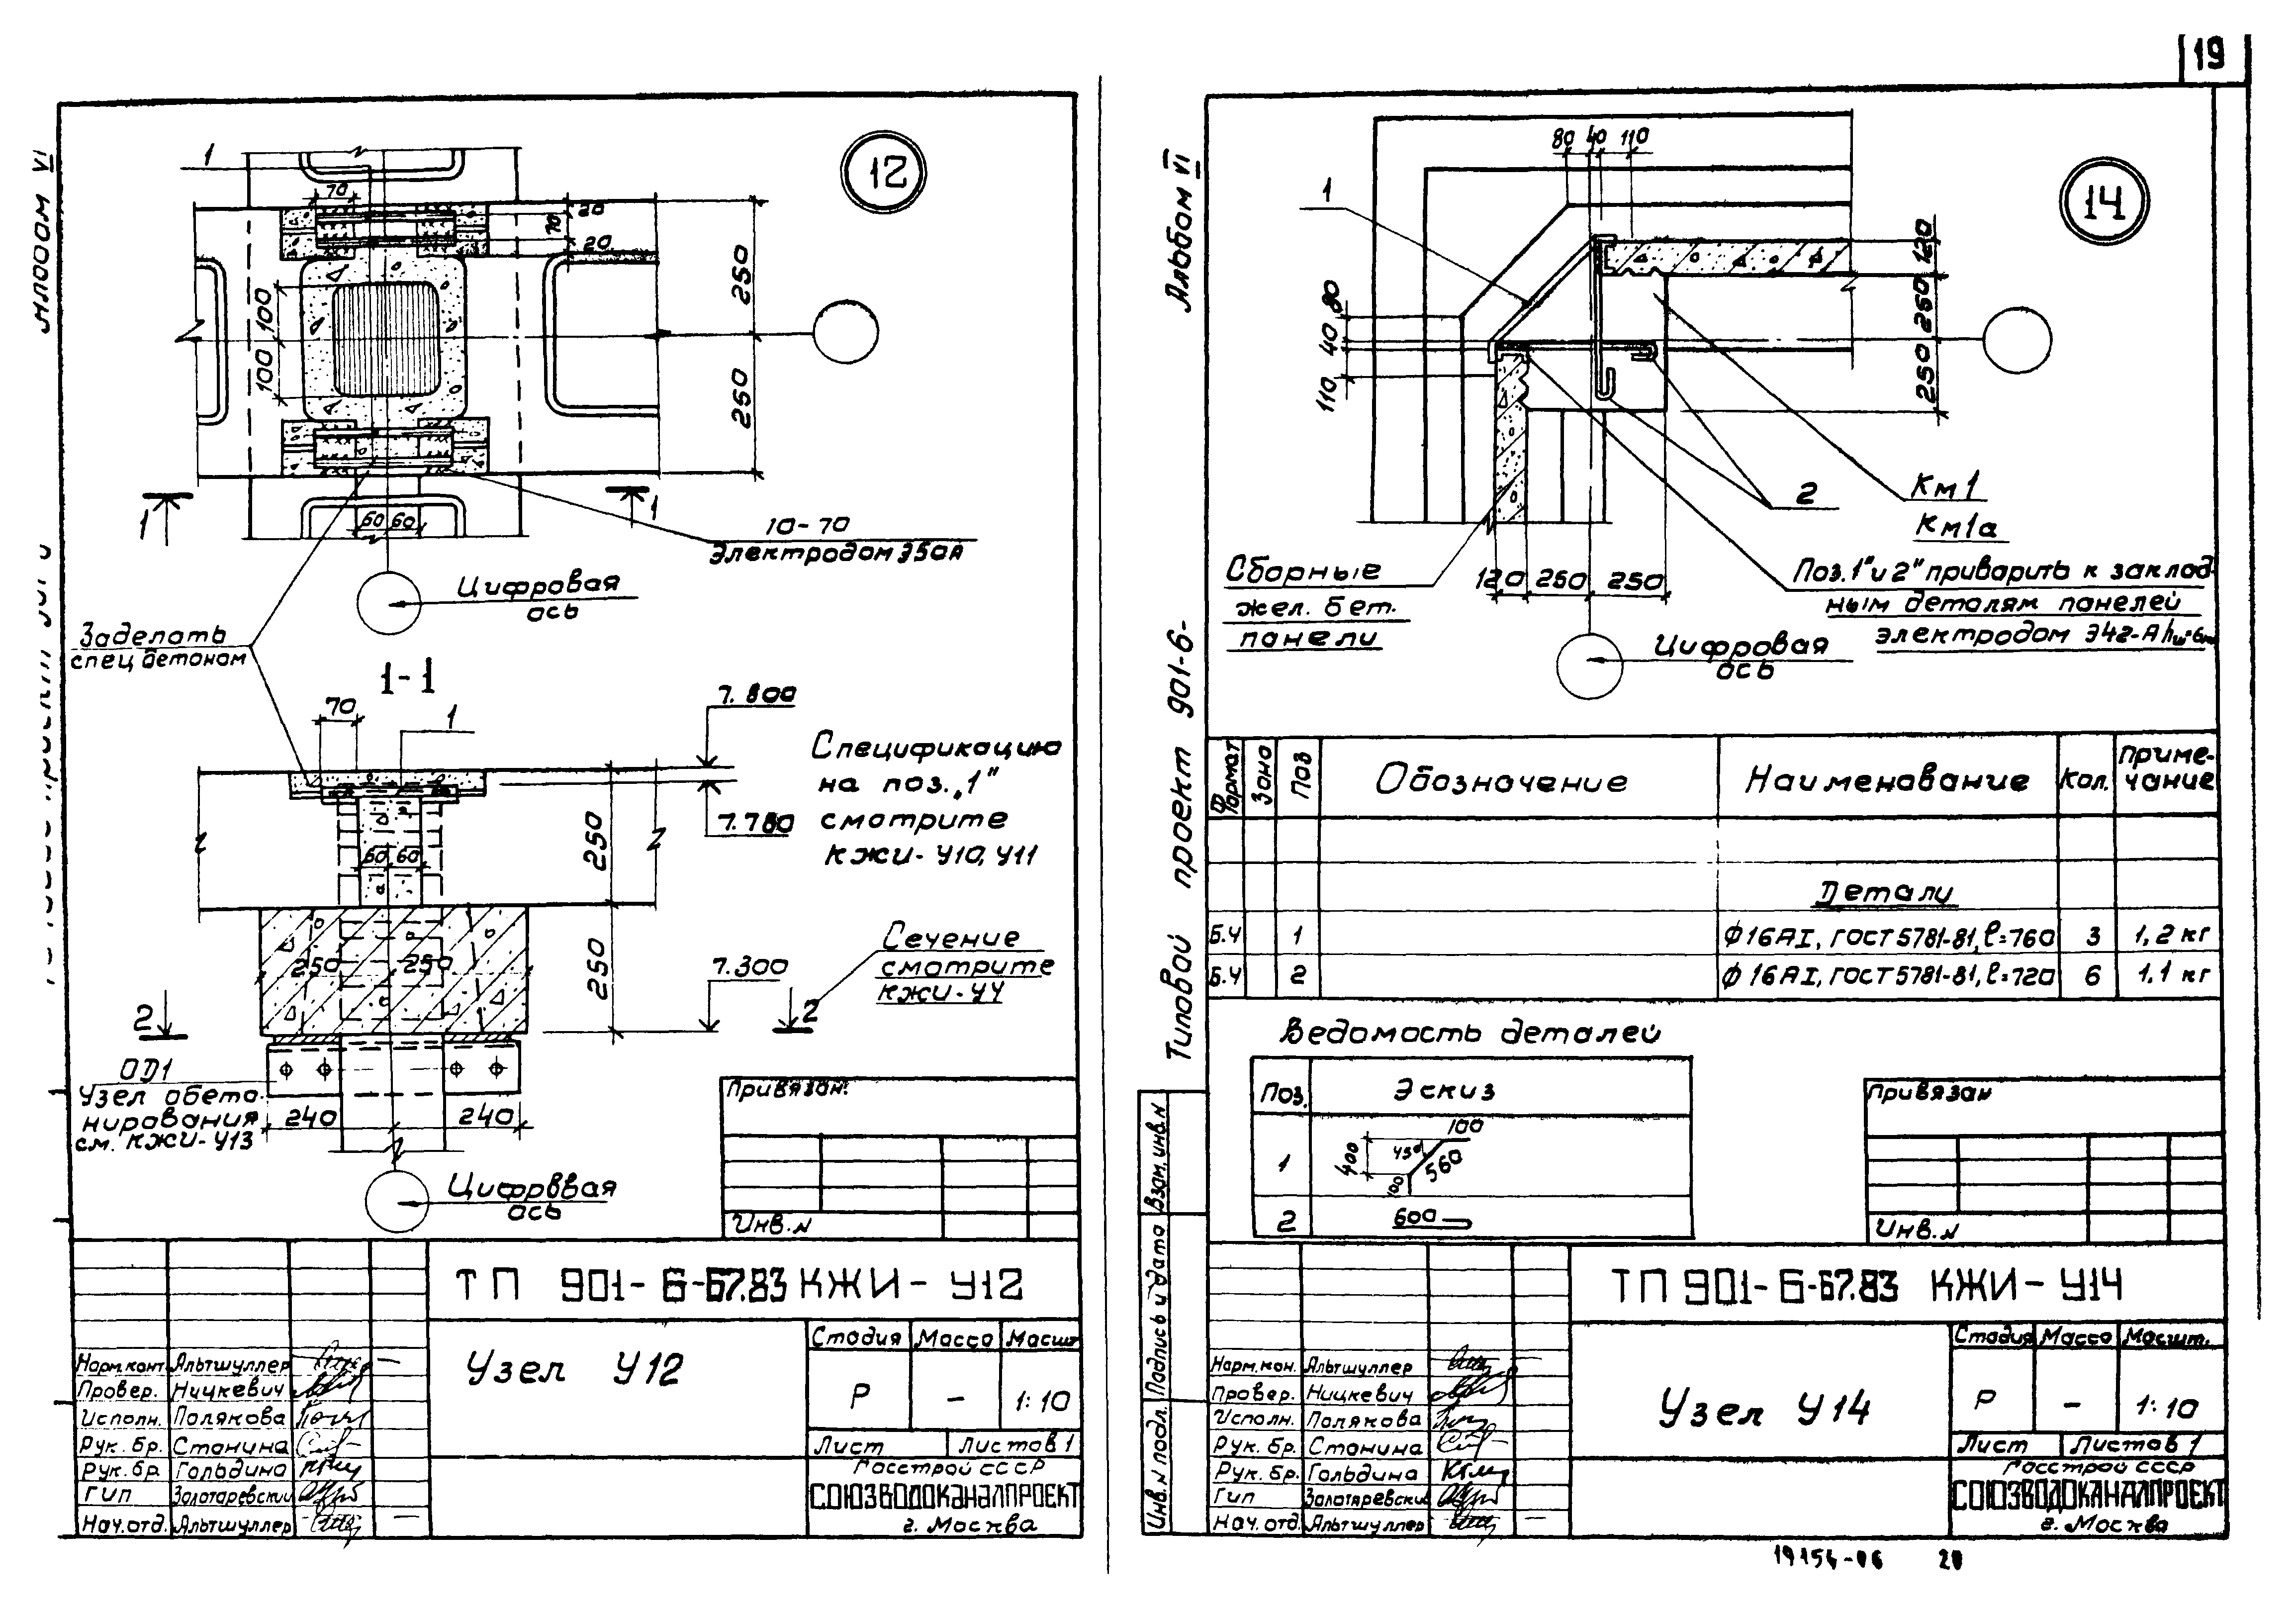 19
Альбом VI
12
1
70
20
70
20
250
250
100
100
1
1
60 60
10-70
Электродом Э50А
Цифровая
ось
Заделать
спец бетоном
1-1
70
1
7.800
7.780
250
60 60
250
250 250
7.300
2
2
Спецификацию
на поз. „1"
смотрите
КЖИ-У10, У11
Сечение
смотрите
КЖИ-У4
ОД1
Узел обето-
нирования
см. КЖИ-У13
240
240
Цифровая
ось
Привязан:
Инв.N
ТП 901-6-67.83 КЖИ-У12
Узел У12
Стадия Масса Масшт
Р - 1:10
Лист Листов 1
Госстрой СССР
СОЮЗВОДОКАНАЛПРОЕКТ
г. Москва
Норм.конт Альтшуллер
Провер. Ницкевич
Исполн. Полякова
Рук. бр. Станина
Рук. бр. Гольдина
ГИП Золотаревский
Нач.отд. Альтшуллер
Альбом VI
Типовой проект 901-6-
14
80 40 110
1
80
40
110
120
250
250
2
Км1
Км1а
Сборные
жел. бет.
панели
120 250 250
Поз. 1" и 2" приварить к заклад-
ным деталям панелей
электродом Э42-А hш=6мм
Цифровая
ось
Формат Зона Поз Обозначение Наименование Кол. Приме-
чание
Детали
Б.Ч 1 Ф16АI, ГОСТ 5781-81, ℓ=760 3 1,2 кг
Б.Ч 2 Ф16АI, ГОСТ 5781-81, ℓ=720 6 1,1 кг
Ведомость деталей
Поз. Эскиз
1 400 45° 560 100 100
2 600
Привязан
Инв.N
Взам. инв.N
Подпись и дата
Инв. N подл.
ТП 901-6-67.83 КЖИ-У14
Узел У14
Стадия Масса Масшт.
Р - 1:10
Лист Листов 1
Госстрой СССР
СОЮЗВОДОКАНАЛПРОЕКТ
г. Москва
Норм.кон. Альтшуллер
Провер. Ницкевич
Исполн. Полякова
Рук. бр. Станина
Рук. бр. Гольдина
ГИП Золотаревски
Нач. отд. Альтшуллер
19154-06 20